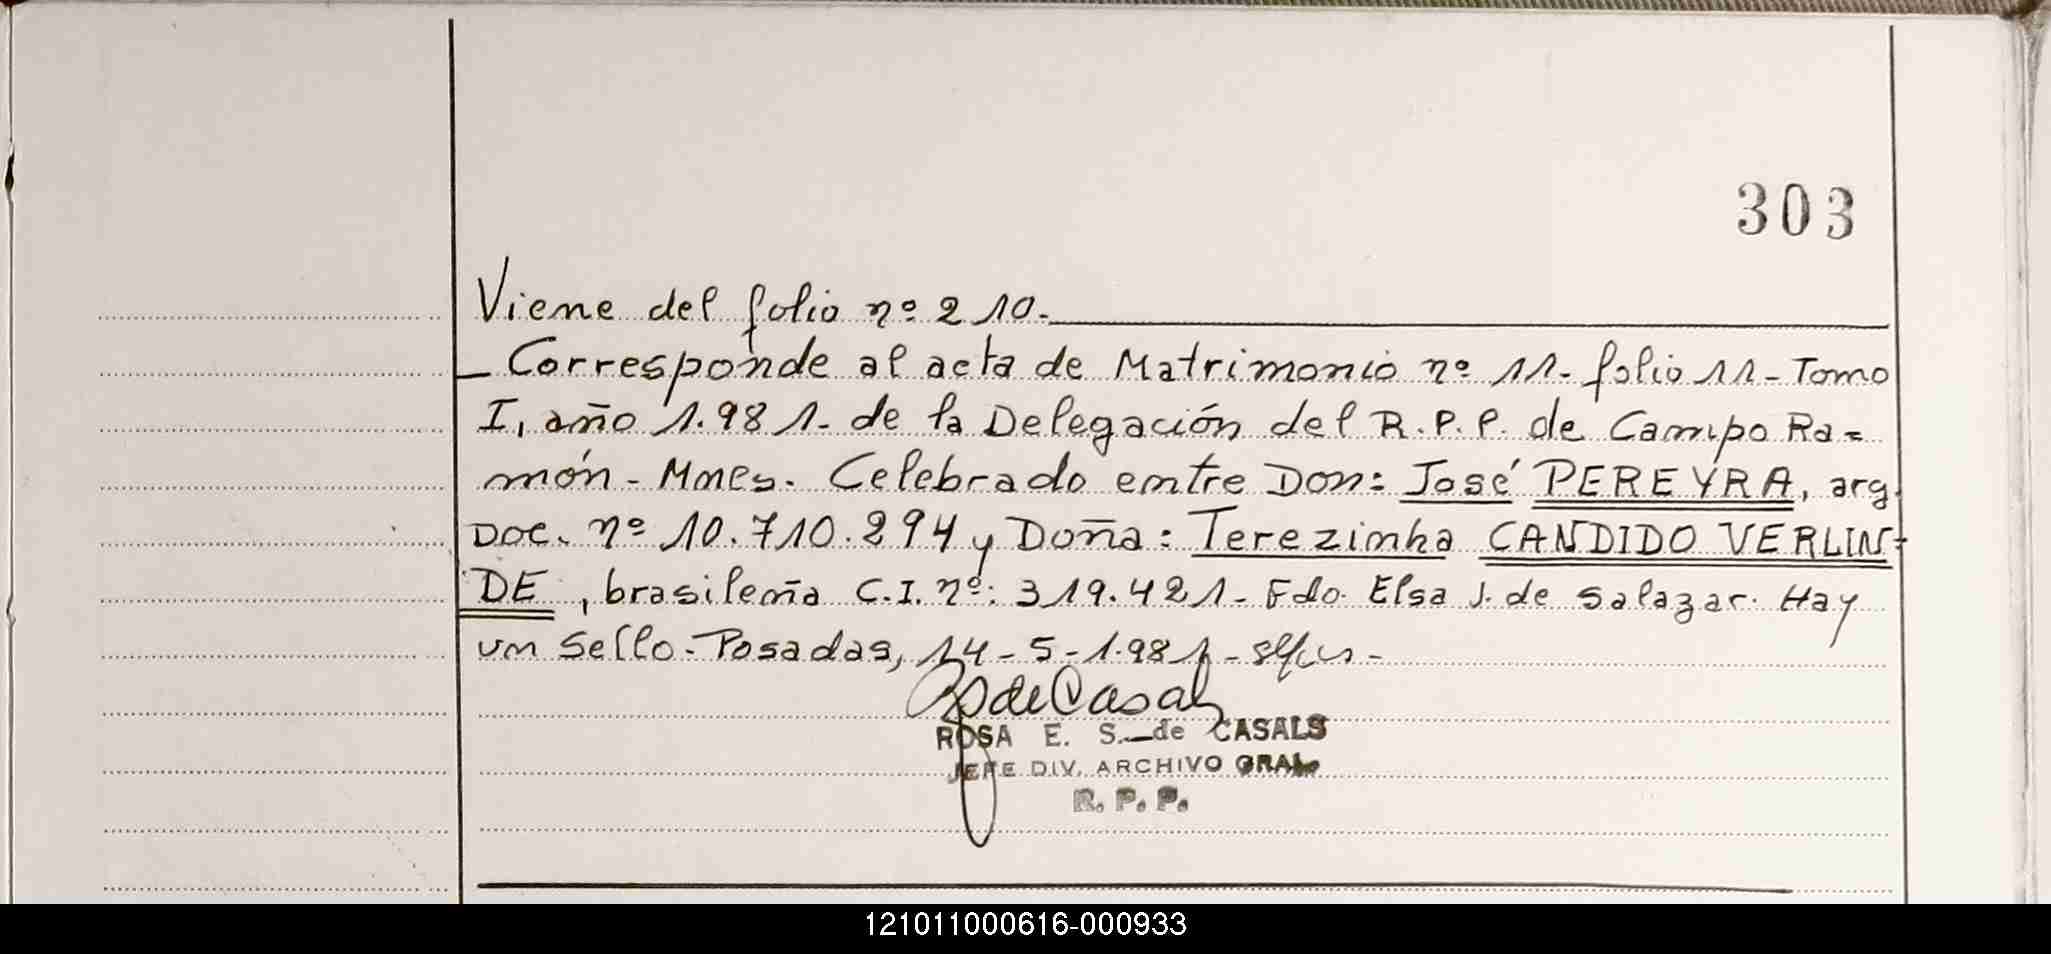 303
Viene del folio nº 210.
_ Corresponde al acta de Matrimonio nº 11- folio 11- Tomo
I, año 1.981- de la Delegación del R.P.P. de Campo Ra=
món- Mnes. Celebrado entre Don: José PEREYRA, arg.
Doc. nº 10.710.294 y Doña: Terezinha CANDIDO VERLIN-
DE, brasileña C.I. nº: 319.421- Fdo. Elsa J. de Salazar. Hay
un Sello- Posadas, 14-5-1.981-
de Casals
ROSA E. S. de CASALS
JEFE DIV. ARCHIVO GRAL.
R. P. P.
121011000616-000933